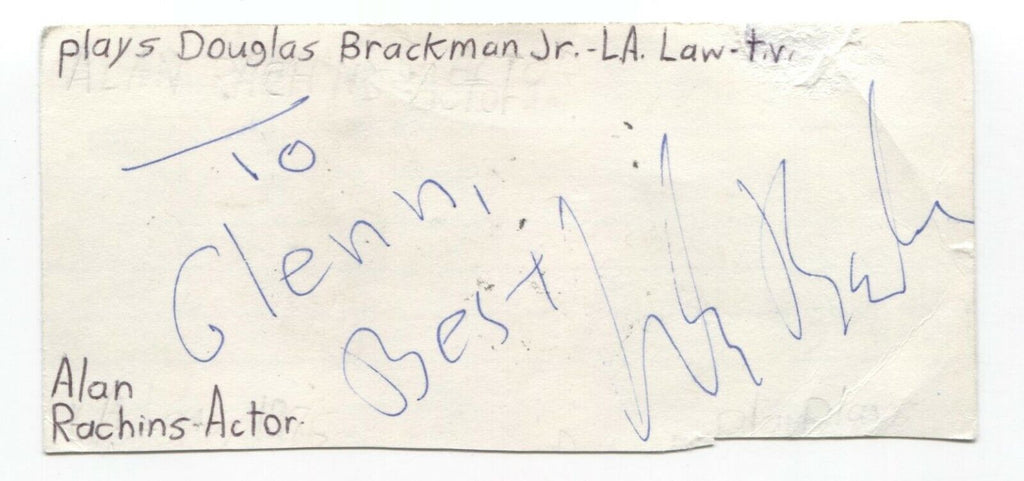 plays Douglas Brackman Jr.-LA. Law-t.v.
To
Glenn,
Best
Alan
Rachins-Actor